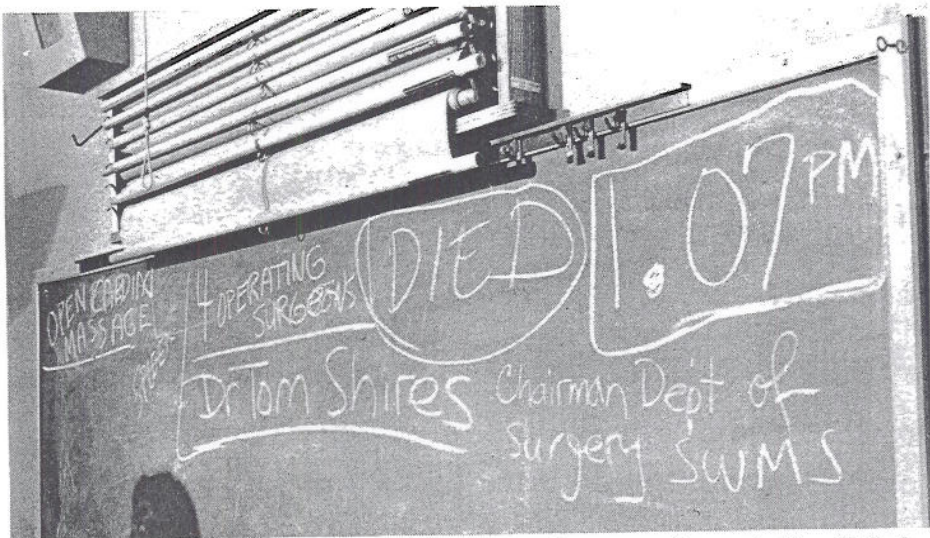 OPEN CARDIAC
MASSAGE
4 OPERATING
SURGEONS
DIED
1.07 PM
Dr Tom Shires
Chairman Dept of
Surgery SWMS